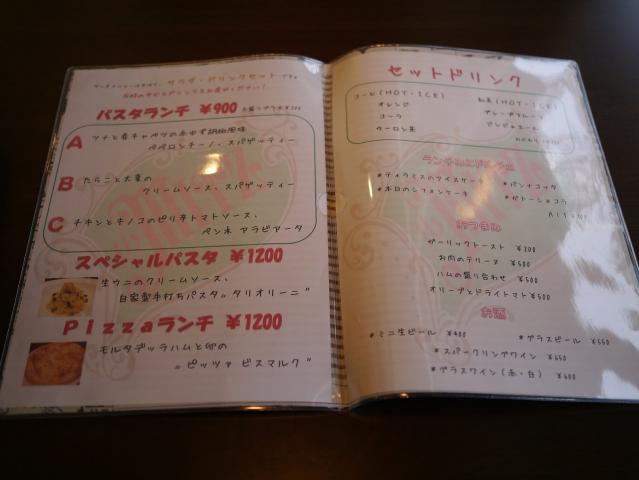 ランチメニューはすべて、サラダ・ドリンクセットです
パスタランチ ¥900 大盛りプラス¥200
A ツナと春キャベツの赤ゆず胡椒風味
ペペロンチーノ、スパゲッティー
B たらこと大葉の
クリームソース、スパゲッティー
C チキンとキノコのピリ辛トマトソース、
ペンネ アラビアータ
スペシャルパスタ ¥1200
生ウニのクリームソース、
自家製手打ちパスタ"タリオリーニ"
Pizzaランチ ¥1200
モルタデッラハムと卵の
"ピッツァ ビスマルク"
セットドリンク
コーヒー(HOT・ICE) 紅茶(HOT・ICE)
オレンジ グレープフルーツ
コーラ ジンジャエール
ウーロン茶
*ティラミスのアイスケーキ *パンナコッタ
*ホロのシフォンケーキ *ガトーショコラ
おつまみ
ガーリックトースト ¥200
お肉のテリーヌ ¥500
ハムの盛り合わせ ¥500
オリーブとドライトマト ¥500
お酒
*ミニ生ビール ¥400 *グラスビール ¥550
*スパークリングワイン ¥650
*グラスワイン(赤・白) ¥600